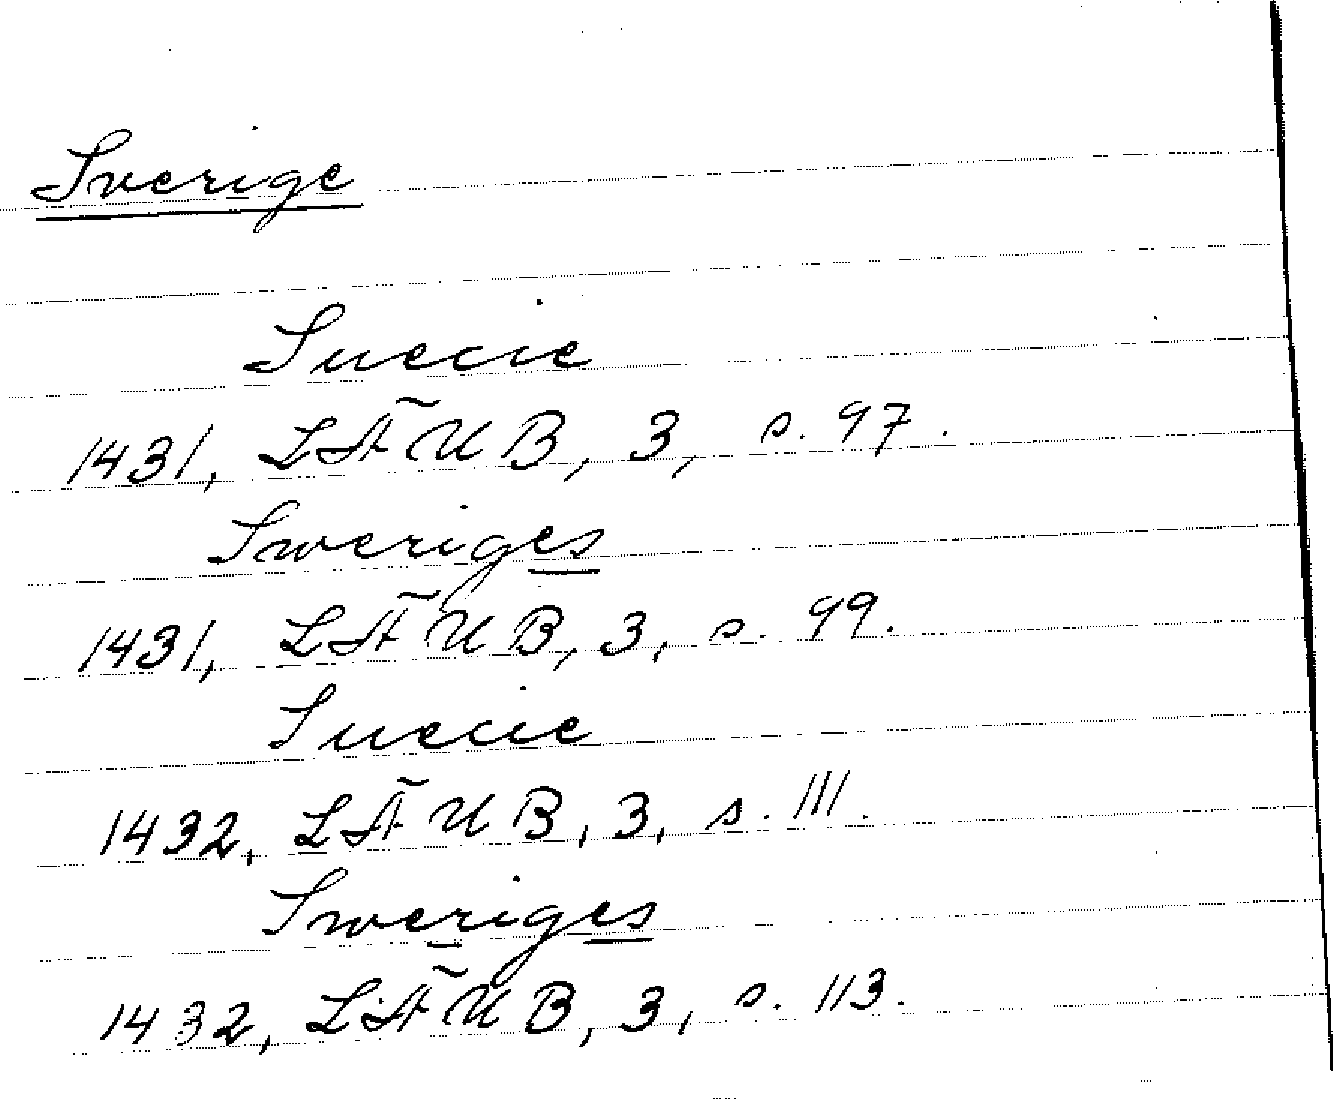 Sverige
Suecie
1431, LÄUB, 3, s. 97.
Sweriges
1431, LÄUB, 3, s. 99.
Suecie
1432, LÄUB, 3, s. 111.
Sweriges
1432, LÄUB, 3, s. 113.